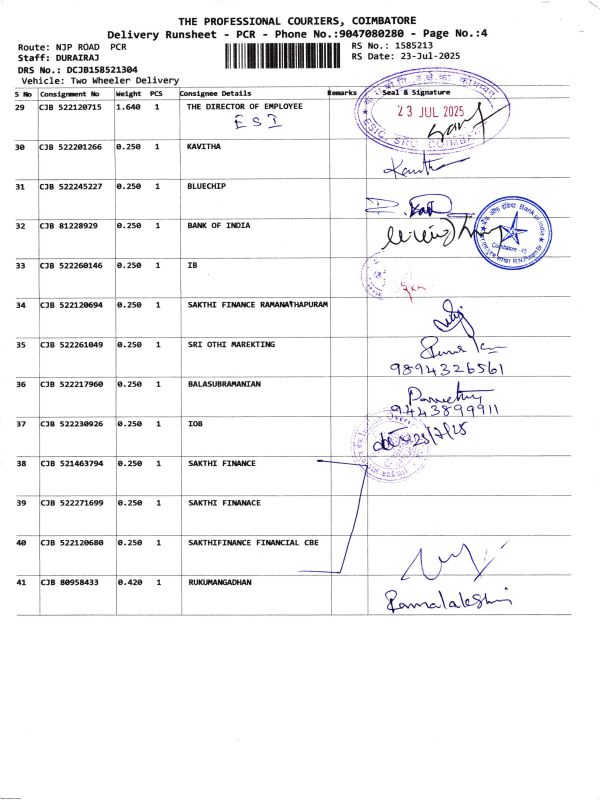 THE PROFESSIONAL COURIERS, COIMBATORE
Delivery Runsheet - PCR - Phone No.:9047080280 - Page No.:4
Route: NJP ROAD PCR
RS No.: 1585213
Staff: DURAIRAJ
RS Date: 23-Jul-2025
DRS No.: DCJB158521304
Vehicle: Two Wheeler Delivery
S No Consignment No Weight PCS Consignee Details Remarks Seal & Signature
29 CJB 522120715 1.640 1 THE DIRECTOR OF EMPLOYEE
ESI
23 JUL 2025
ESIC, SRO, COIMBATORE
30 CJB 522201266 0.250 1 KAVITHA
Kavitha
31 CJB 522245227 0.250 1 BLUECHIP
32 CJB 81228929 0.250 1 BANK OF INDIA
Bank of India
Coimbatore - 45
R.N.Puram Br
33 CJB 522260146 0.250 1 IB
34 CJB 522120694 0.250 1 SAKTHI FINANCE RAMANATHAPURAM
35 CJB 522261049 0.250 1 SRI OTHI MAREKTING
9894326561
36 CJB 522217960 0.250 1 BALASUBRAMANIAN
9443899911
37 CJB 522230926 0.250 1 IOB
23/7/25
38 CJB 521463794 0.250 1 SAKTHI FINANCE
39 CJB 522271699 0.250 1 SAKTHI FINANACE
40 CJB 522120680 0.250 1 SAKTHIFINANCE FINANCIAL CBE
41 CJB 80958433 0.420 1 RUKUMANGADHAN
Ramalakshmi